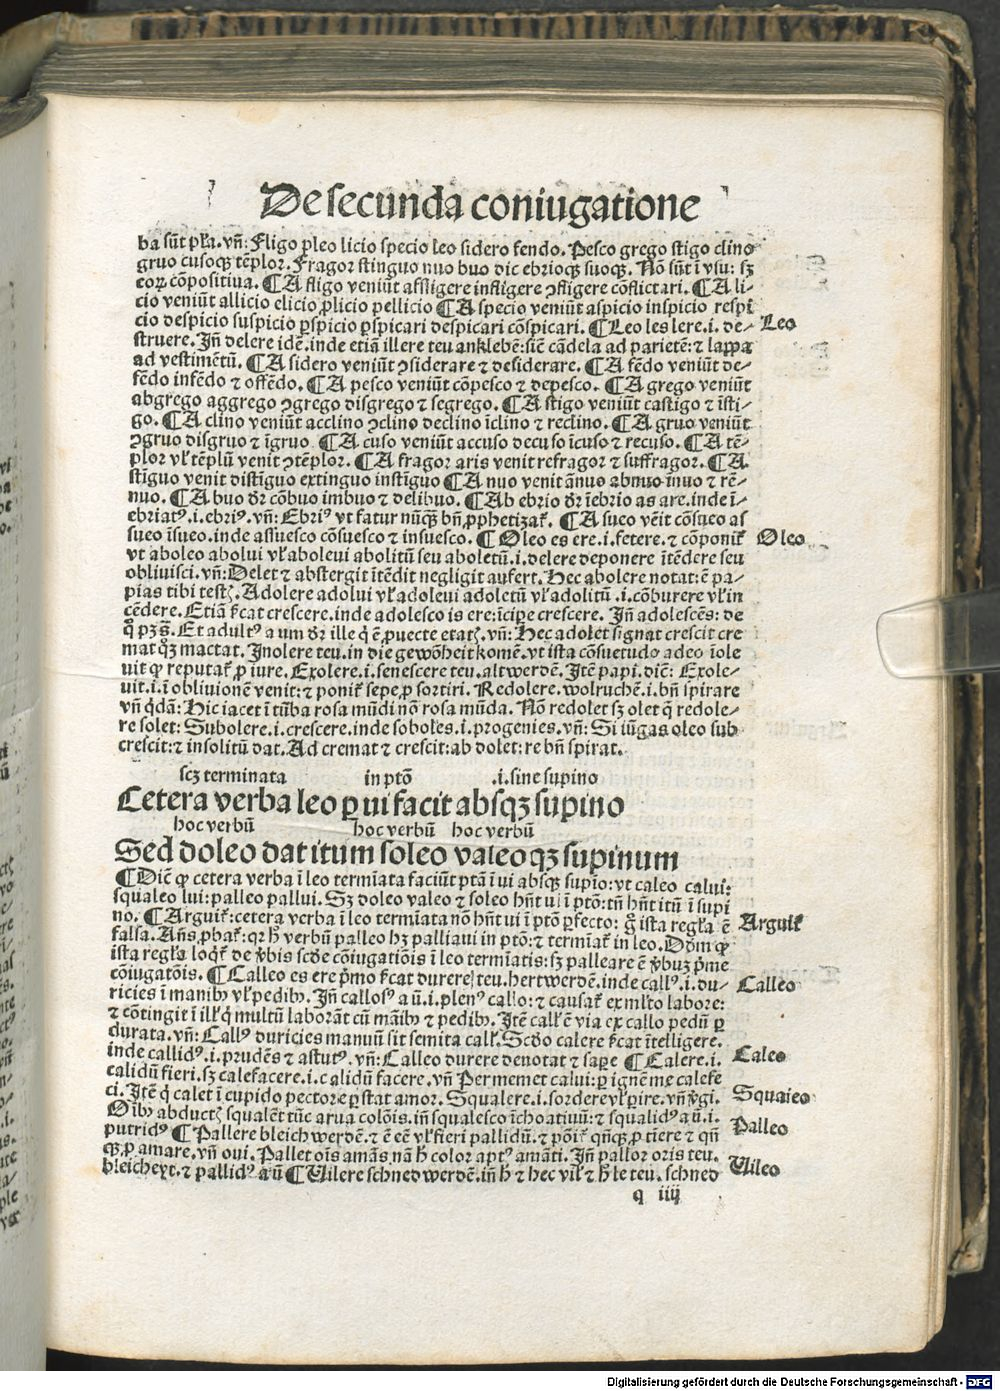 De secunda coniugatione
ba sūt pl̄a. vn̄: Fligo pleo licio specio leo sidero fendo. Pesco grego stigo clino
gruo cusoqꝫ tēplor. Fragor stinguo nuo buo dic ebrioqꝫ suoqꝫ. Nō sūt ī vsu: sꝫ
eoꝝ cōpositiua. ¶ A fligo veniūt affligere infligere ꝯfligere cōflictari. ¶ A li-
cio veniūt allicio elicio ꝓlicio pellicio ¶ A specio veniūt aspicio inspicio respi
cio despicio suspicio ꝑspicio ꝑspicari despicari cōspicari. ¶ Leo les lere .i. de- Leo
struere. Jn̄ delere idē. inde etiā illere teu anklebē: sicē cādela ad parietē: ⁊ lappa
ad vestimētū. ¶ A sidero veniūt ꝯsiderare ⁊ desiderare. ¶ A fēdo veniūt de-
fēdo infēdo ⁊ offēdo. ¶ A pesco veniūt cōpesco ⁊ depesco. ¶ A grego veniūt
abgrego aggrego ꝯgrego disgrego ⁊ segrego. ¶ A stigo veniūt castigo ⁊ īsti-
go. ¶ A clino veniūt acclino ꝯclino declino īclino ⁊ reclino. ¶ A gruo veniūt
ꝯgruo disgruo ⁊ īgruo ¶ A cuso veniūt accuso decuso īcuso ⁊ recuso. ¶ A tē-
plor vl̄ tēplū venit ꝯtēplor. ¶ A fragor aris venit refragor ⁊ suffragor. ¶ A
stīguo venit distīguo extinguo instīguo ¶ A nuo venit ānuo abnuo īnuo ⁊ rē-
nuo. ¶ A buo dr̄ cōbuo imbuo ⁊ delibuo. ¶ Ab ebrio dr̄ īebrio as are. inde ī-
ebriatꝰ .i. ebriꝰ. vn̄: Ebriꝰ vt fatur nūqꝫ bn̄ ꝓphetizat̄. ¶ A sueo vēit cōsueo as
sueo īsueo. inde assuesco cōsuesco ⁊ insuesco. ¶ Oleo es ere .i. fetere. ⁊ cōponit̄ Oleo
vt aboleo abolui vl̄ aboleui abolitū seu aboletū .i. delere deponere ītēdere seu
obliuisci. vn̄: Delet ⁊ abstergit ītēdit negligit aufert. Hec abolere notat: ē pa-
pias tibi testꝭ. Adolere adolui vl̄ adoleui adoletū vl̄ adolitū .i. cōburere vl̄ in
cēdere. Etiā ſcat crescere. inde adolesco is ere: īcipe crescere. Jn̄ adolescēs: de
Et adultꝰ a um dr̄ ille q̄ ē ꝓuecte etatꝭ. vn̄: Hec adolet signat crescit cre
mat qꝫ mactat. Jnolere teu. in die gewōheit komē. vt ista cōsuetudo adeo īole
uit ꝙ reputat̄ ꝓ iure. Exolere .i. senescere teu. altwerdē. Jtē papi. dic̄: Exole-
uit .i. ī obliuionē venit: ⁊ ponit̄ sepe ꝓ sortiri. Redolere. wolruchē .i. bn̄ spirare
vn̄ q̄dā: Hic iacet ī tūba rosa mūdi nō rosa mūda. Nō redolet sꝫ olet q̄ redole-
re solet: Subolere .i. crescere. inde soboles .i. progenies. vn̄: Si iūgas oleo sub
crescit: ⁊ insolitū dat. Ad cremat ⁊ crescit: ab dolet: re bn̄ spirat.
scꝫ terminata in ptō .i. sine supino
Cetera verba leo ꝑ ui facit absqꝫ supino
hoc verbū hoc verbū hoc verbū
Sed doleo dat itum soleo valeoqꝫ supinum
¶ Dic̄ ꝙ cetera verba ī leo termīata faciūt ptā ī ui absqꝫ supīo: vt caleo calui:
squaleo lui: palleo pallui. Sꝫ doleo valeo ⁊ soleo hn̄t ui ī ptō: tn̄ hn̄t itū ī supi
no. ¶ Arguit̄: cetera verba ī leo termīata nō hn̄t ui ī ptō ꝑfecto: g̊ ista regl̄a ē Arguit̄
falsa. An̄s ꝓbat̄: qꝛ h̄ verbū palleo hꝫ palliaui in ptō: ⁊ termīat̄ in leo. Dōm ꝙ
ista regl̄a loqt̄ de v̄bis scd̄e cōiugatiōis ī leo termīatis: sꝫ palleare ē v̄buꝫ p̄me
cōiugatōis. ¶ Calleo es ere p̄mo ſcat durere teu. hertwerdē. inde callꝰ .i. du- Calleo
ricies ī manibꝰ vl̄ pedibꝰ. Jn̄ callosꝰ a ū .i. plenꝰ callo: ⁊ causat̄ ex ml̄to labore:
⁊ cōtingit ī ill̄ q̄ multū laborāt cū māibꝰ ⁊ pedibꝰ. Jtē call̄ ē via ex callo pedū ꝑ
durata. vn̄: Callꝰ duricies manuū sit semita call̄. Scd̄o calere ſcat ītelligere.
inde callidꝰ .i. prudēs ⁊ astutꝰ. vn̄: Calleo durere denotat ⁊ saꝑe ¶ Calere .i. Caleo
calidū fieri. sꝫ calefacere .i. calidū facere. vn̄ Per memet calui: ꝑ ignē me calefe
ci. Jtē q̄ calet ī cupido pectore ꝑstat amor. Squalere .i. sordere vl̄ ꝑire. vn̄ v̄gi. Squaleo
Oībꝰ abductꝭ squalēt tūc arua colōis. in̄ squalesco īchoatiuū: ⁊ squalidꝰ a ū .i.
putridꝰ ¶ Pallere bleich werdē. ⁊ ē eē vl̄ fieri pallidū. ⁊ pōit̄ qn̄qꝫ ꝓ tiere ⁊ qn̄ Palleo
qꝫ ꝓ amare. vn̄ oui. Pallet oīs amās nā h̄ color aptꝰ amāti. Jn̄ pallor oris teu.
bleicheyt. ⁊ pallidꝰ a ū ¶ Uilere schned werdē. in̄ h̄ ⁊ hec vil̄ ⁊ h̄ le teu. schned Uileo
q iiij
Digitalisierung gefördert durch die Deutsche Forschungsgemeinschaft - DFG